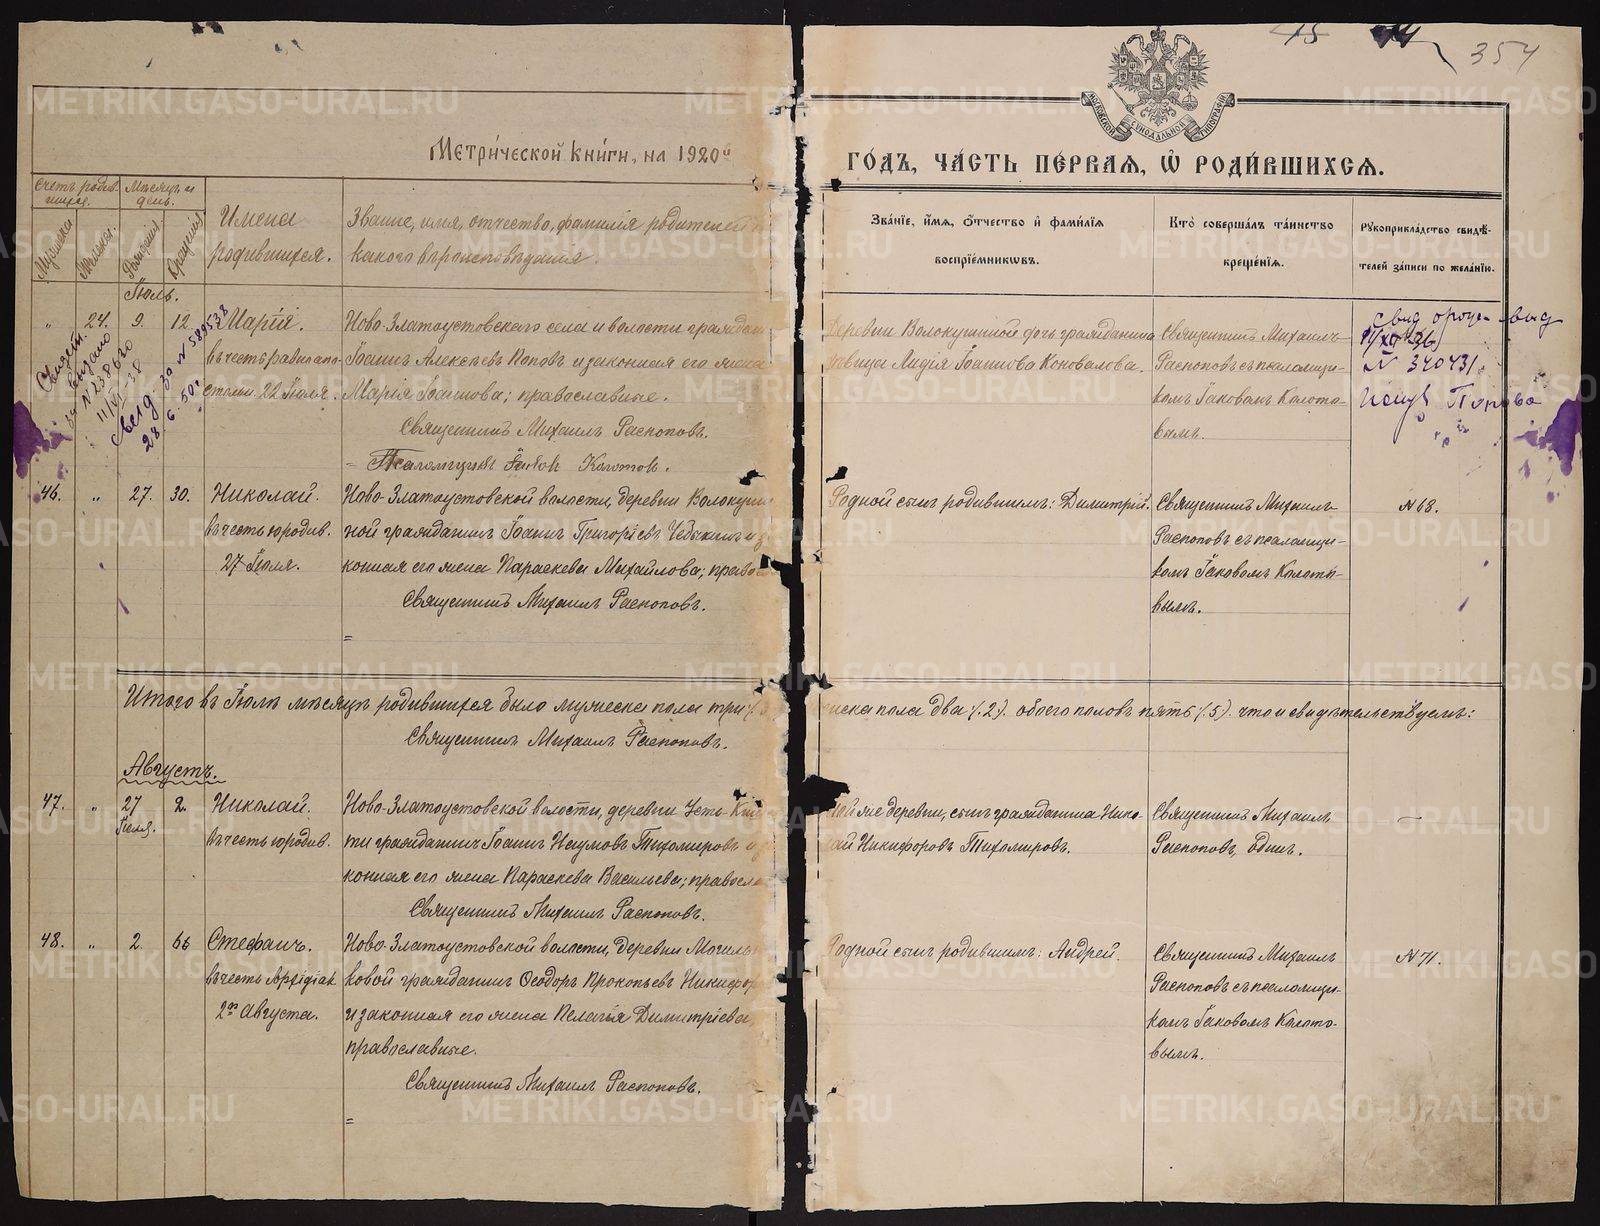 354
Метрической книги, на 1920й
годъ, часть первая, ѡ родившихся.
Счетъ родив-
шихся.
Мѣсяцъ и
день.
Мужска
Женска.
Рожденія
Крещенія
Имена
родившихся.
Званіе, имя, отчество, фамилія родителей
какого вѣроисповѣданія.
Званіе, имя, отчество и фамилія
воспріемниковъ.
Кто совершалъ таинство
крещенія.
Рукоприкладство свидѣ-
телей записи по желанію.
Іюль.
„ 24. 9. 12 Марія.
въ честь равноапо-
стольн. 22 Іюля.
Ново-Златоустовскаго села и волости граждан
Іоаннъ Алексѣевъ Поповъ и законная его жена
Марія Іоаннова; православные.
Священникъ Михаилъ Распоповъ.
Псаломщикъ Іаковъ Колотов.
Деревни Волокушиной дочь гражданина
дѣвица Лидія Іоаннова Коновалова.
Священникъ Михаилъ
Распоповъ съ псаломщи-
комъ Іаковомъ Колото-
вымъ.
N 340431
Попова
выдано
N 238620
11/VI-38
N 589538
28.6.50г
46. „ 27. 30. Николай.
въ честь юродив.
27 Іюля.
Ново-Златоустовской волости, деревни Волокуши
ной гражданинъ Іоаннъ Григорьевъ Чебыкинъ и з
конная его жена Параскева Михайлова; правос
Священникъ Михаилъ Распоповъ.
Родной сынъ родившимъ: Димитрій.
Священникъ Михаилъ
Распоповъ съ псаломщи-
комъ Іаковомъ Колото-
вымъ.
N 68.
Итого въ Іюлѣ мѣсяцѣ родившихся было мужеска пола три
женска пола два (2). обоего половъ пять (5). что и свидѣтельствуемъ:
Священникъ Михаилъ Распоповъ.
Августъ.
47. „ 27 Іюля. 2. Николай.
въ честь юродив.
Ново-Златоустовской волости, деревни Усть-Ки
ти гражданинъ Іоаннъ Наумовъ Тихомировъ и з
конная его жена Параскева Васильева; правосла
Священникъ Михаилъ Распоповъ.
Той же деревни, сынъ гражданина Нико-
лай Никифоровъ Тихомировъ.
Священникъ Михаилъ
Распоповъ, одинъ.
—
48. „ 2 6 Стефанъ.
въ честь Архидіак.
2го Августа.
Ново-Златоустовской волости, деревни Могиль
ковой гражданинъ Ѳеодоръ Прокопьевъ Никифор
и законная его жена Пелагія Димитріева,
православные.
Священникъ Михаилъ Распоповъ.
Родной сынъ родившимъ: Андрей.
Священникъ Михаилъ
Распоповъ съ псаломщи-
комъ Іаковомъ Колото-
вымъ.
N 71.
METRIKI.GASO-URAL.RU